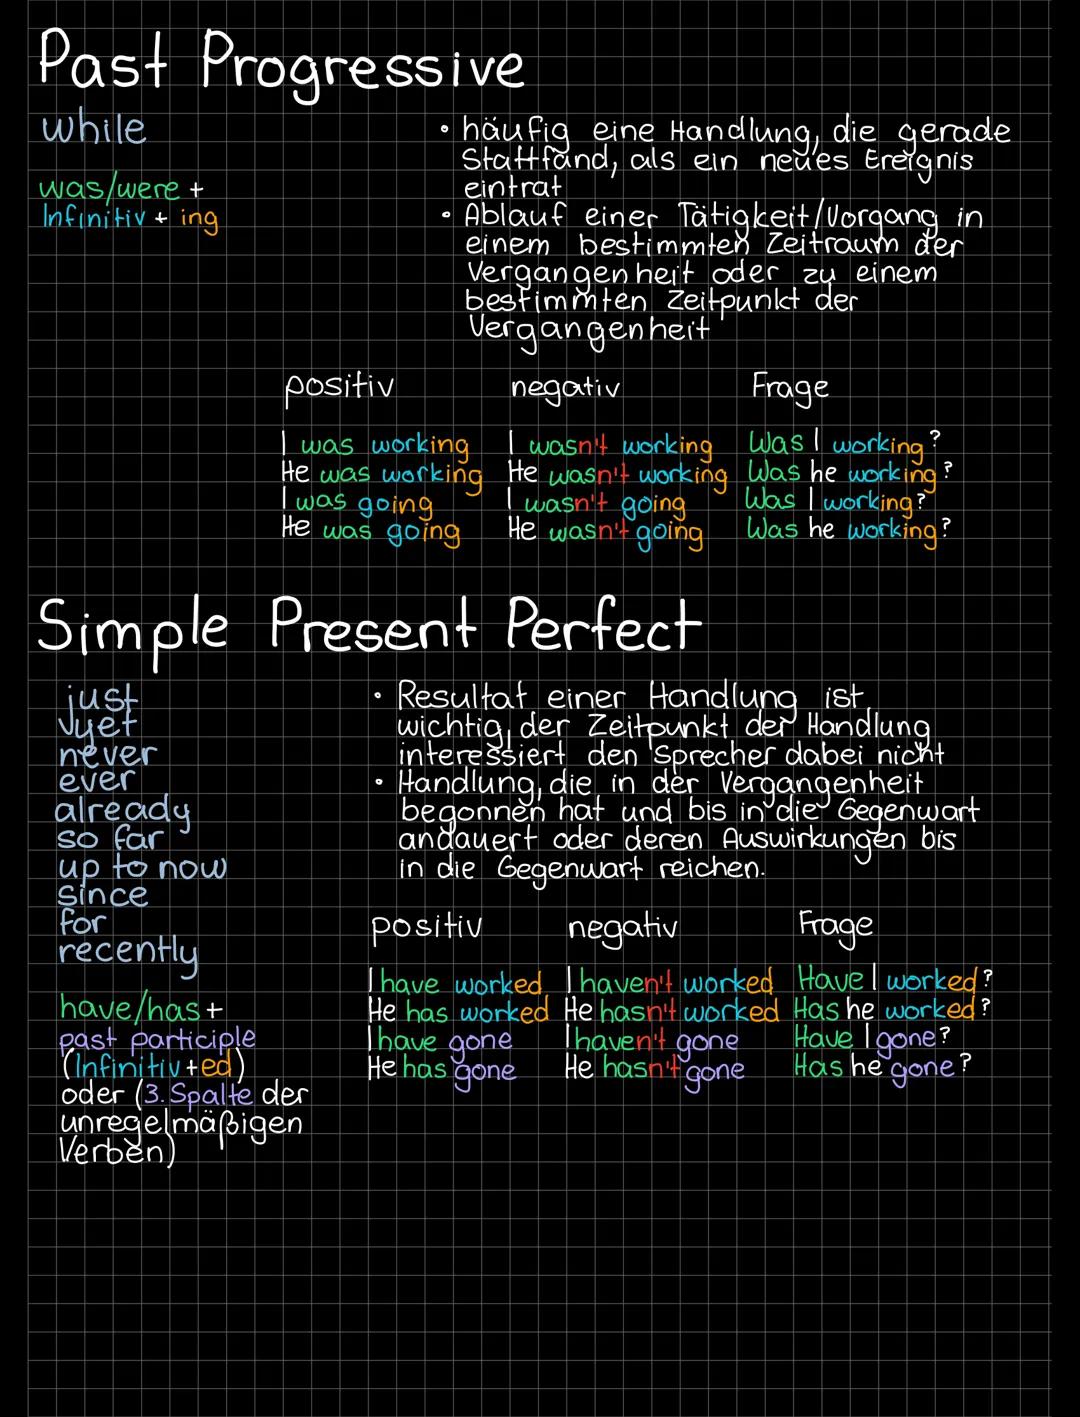 Past Progressive
while
was/were +
Infinitiv + ing
• häufig eine Handlung, die gerade
stattfand, als ein neues Ereignis
eintrat
• Ablauf einer Tätigkeit/Vorgang in
einem bestimmten Zeitraum der
Vergangenheit oder zu einem
bestimmten Zeitpunkt der
Vergangenheit
positiv negativ Frage
I was working I wasn't working Was I working?
He was working He wasn't working Was he working?
I was going I wasn't going Was I working?
He was going He wasn't going Was he working?
Simple Present Perfect
just
yet
never
ever
already
so far
up to now
since
for
recently
have/has +
past participle
(Infinitiv + ed)
oder (3. Spalte der
unregelmäßigen
Verben)
• Resultat einer Handlung ist
wichtig, der Zeitpunkt der Handlung
interessiert den Sprecher dabei nicht
• Handlung, die in der Vergangenheit
begonnen hat und bis in die Gegenwart
andauert oder deren Auswirkungen bis
in die Gegenwart reichen.
positiv negativ Frage
I have worked I haven't worked Have I worked?
He has worked He hasn't worked Has he worked?
I have gone I haven't gone Have I gone?
He has gone He hasn't gone Has he gone?